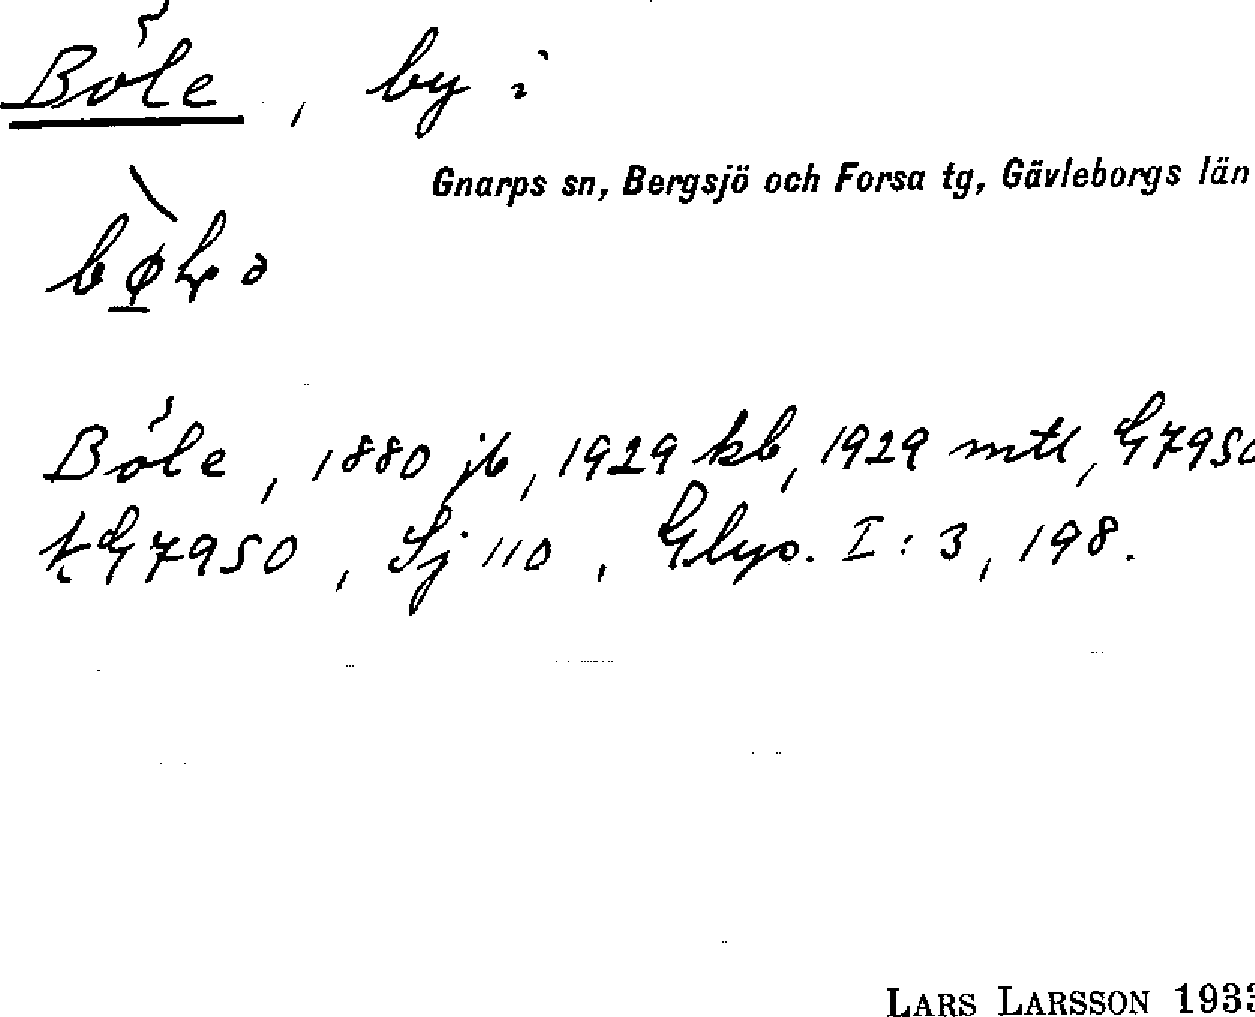 Böle, by i
Gnarps sn, Bergsjö och Forsa tg, Gävleborgs län
Böle, 1880 jb, 1929 kb, 1929 mtl, G7950
tG7950, Sj 110, Glys. I:3, 198.
LARS LARSSON 1933